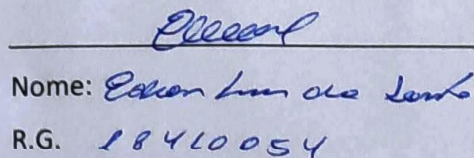 Nome: Edson Luis dos Santos
R.G. 18410054